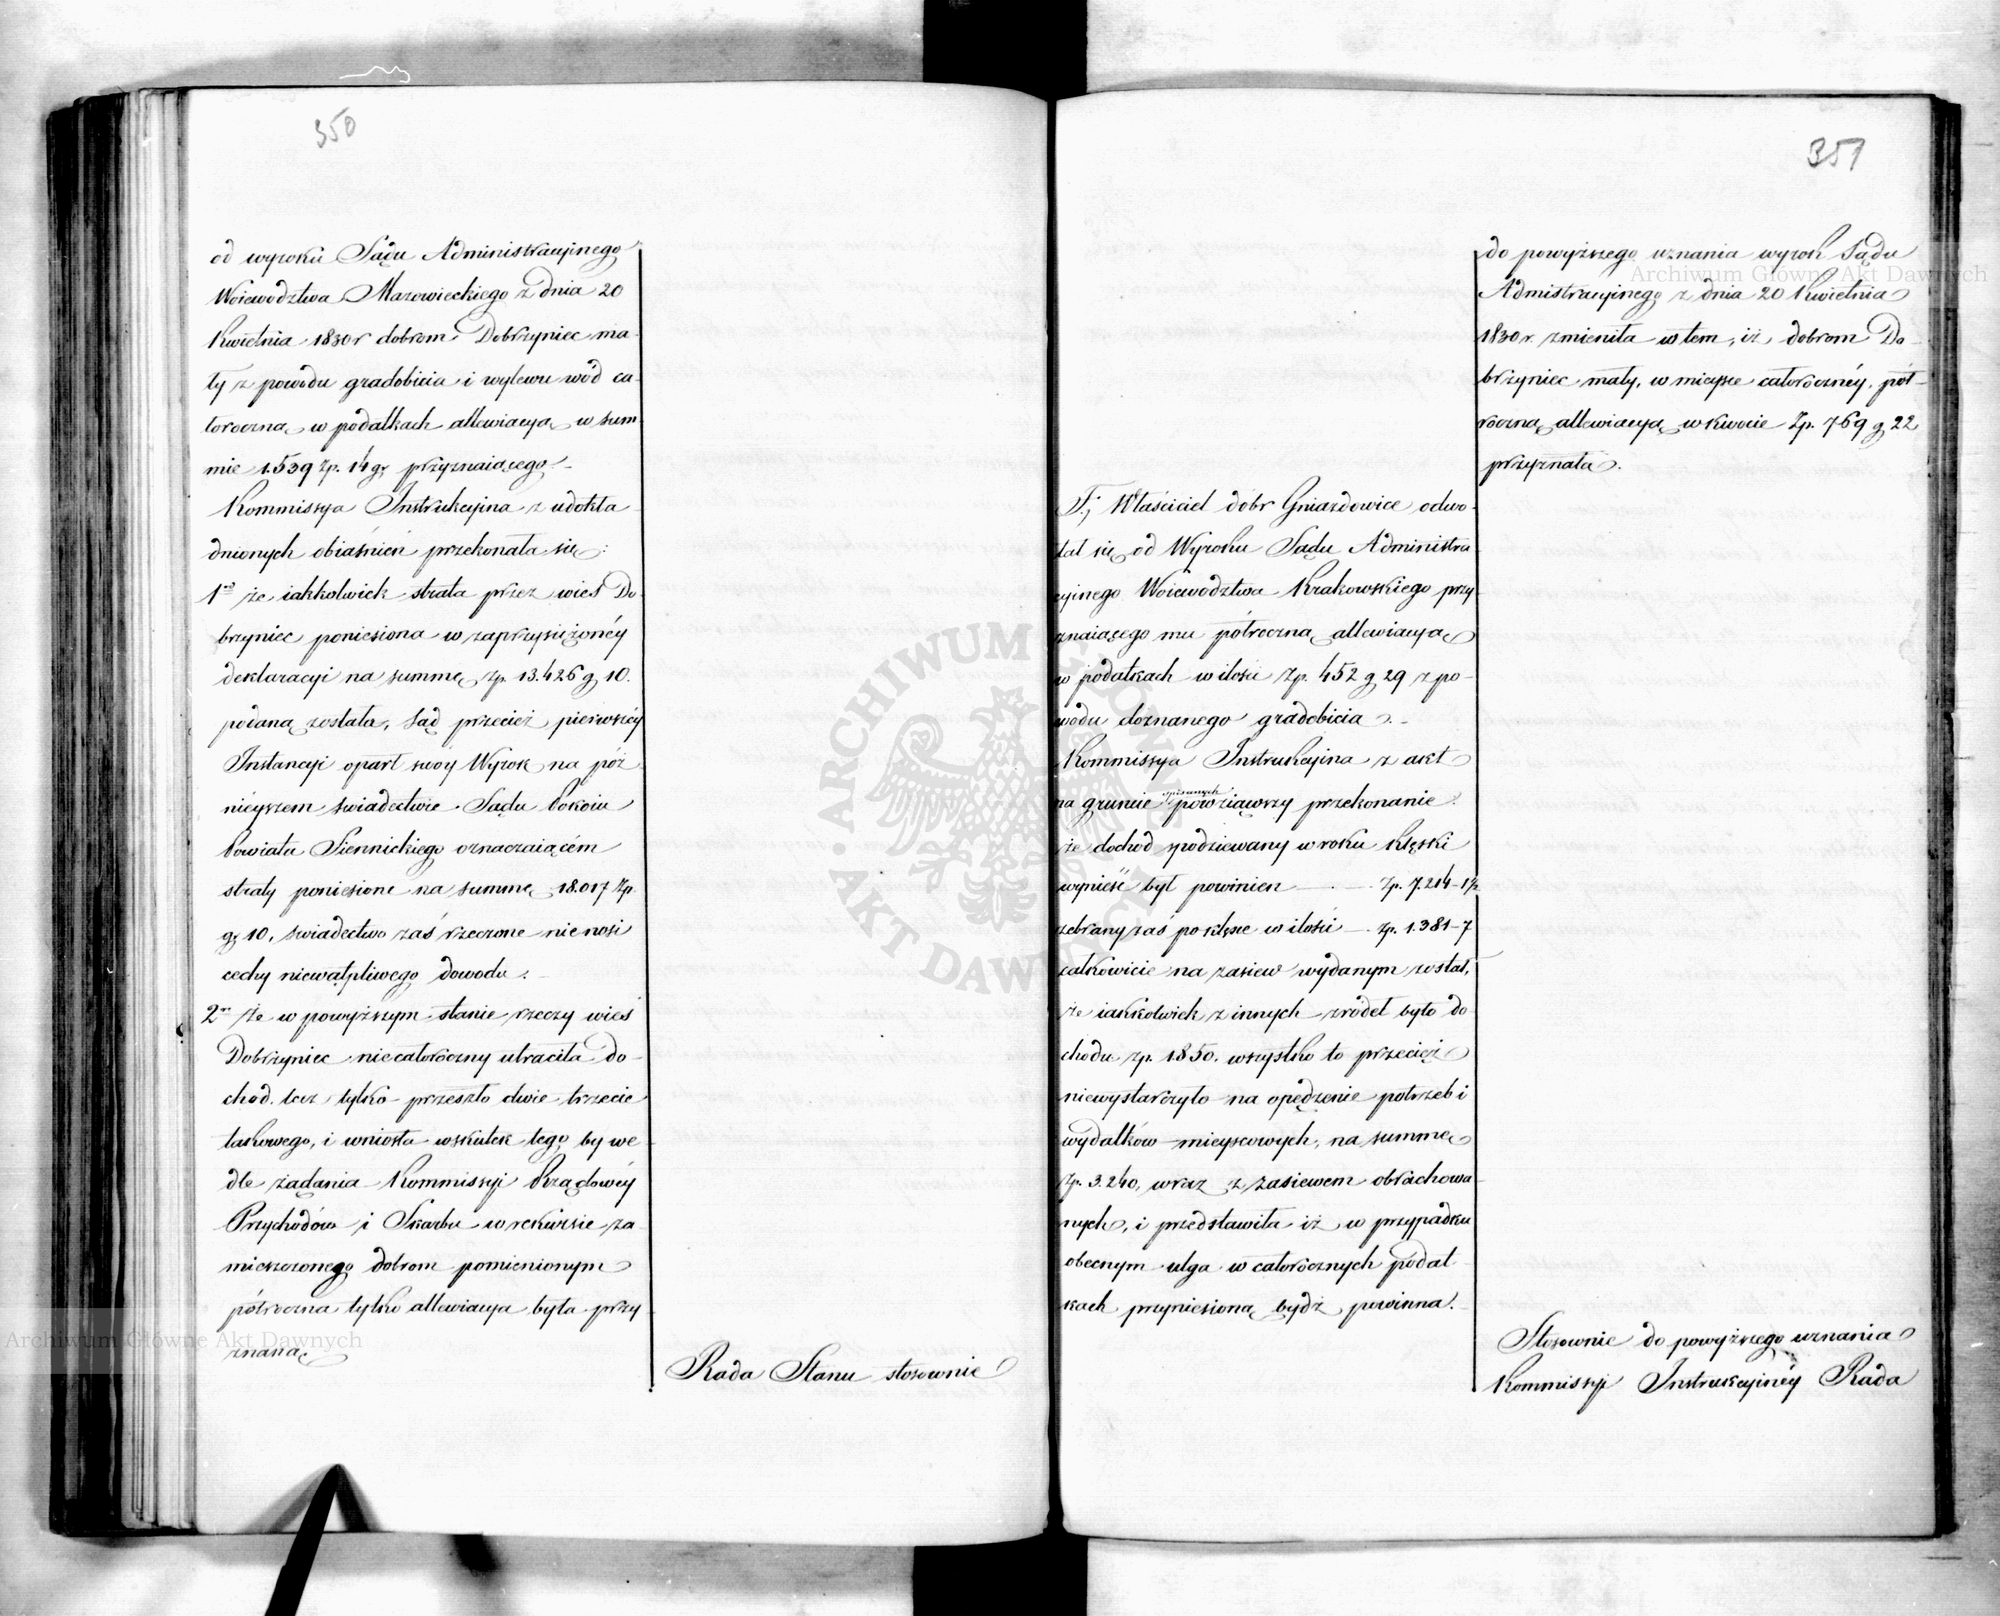 350
od wyroku Sądu Administracyinego
Woiewodztwa Mazowieckiego z dnia 20
Kwietnia 1830r dobrom Dobrzyniec ma-
ły z powodu gradobicia i wylewu wód ca-
łoroczną w podatkach allewiacyą w sum-
mie 1.539 Zp. 14 gr przyznaiącego.
Kommissya Instrukcyina z udokła
dnionych obiaśnień przekonała się:
1nd że iakkolwiek strata przez wieś Do-
brzyniec poniesiona w zaprzysiężonéy
deklaracyi na summę zp. 13.426 g 10.
podaną została, Sąd przecież pierwszéy
Instancyi oparł swóy Wyrok na póź
niéyszem świadectwie Sądu Pokoiu
Powiatu Siennickiego oznaczaiącém
straty poniesione na summę 18.017 Zp.
gr 10, świadectwo zaś rzeczone nienosi
cechy niewątpliwego dowodu.
2re że w powyższym stanie rzeczy wieś
Dobrzyniec niecałoroczny utraciła do-
chód. lecz tylko przeszło dwie trzecie
takowego, i wniosła wskutek tego, by we-
dle żądania Kommissyi Rządowéy
Przychodów i Skarbu w rekursie za-
mieszczonego dobrom pomienionym
półroczna tylko allewiacya była przy
znaną.
Rada Stanu stosownie
351
do powyższego uznania wyrok Sądu
Admistracyinego z dnia 20 Kwietnia
1830r. zmieniła w tem, iż dobrom Do-
brzyniec mały, w mieysce całorocznéy, pół-
roczną allewiacyą w kwocie Zp. 769 g 22
przyznała.
F.; Właściciel dóbr Gniazdowice odwo-
łał się od Wyroku Sądu Administra
cyinego Woiewodztwa Krakowskiego przy
znaiącego mu półroczną allewiacyą
w podatkach w ilości Zp. 452 g 29 z po-
wodu doznanego gradobicia.
Kommissya Instrukcyina z akt
na gruncie spisanych powziąwszy przekonanie.
że dochod spodziewany w roku klęski
wynieść był powinien — Zp. 7.214-1½
zebrany zaś po klęsce w ilości — zp. 1.381-7
całkowicie na zasiew wydanym został,
że iakkolwiek z innych źródeł było do-
chodu zp. 1.850. wszystko to przecież
niewystarczyło na opędzenie potrzeb i
wydatków mieyscowych, na summę
Zp. 3.240, wraz z zasiewem obrachowa-
nych, i przedstawiła iż w przypadku
obecnym ulga w całorocznych podat
kach przyniesioną bydź powinna.
Stosownie do powyższego uznania
Kommissyi Instrukcyinéy Rada
ARCHIWUM GŁÓWNE AKT DAWNYCH
Archiwum Główne Akt Dawnych
Archiwum Główne Akt Dawnych